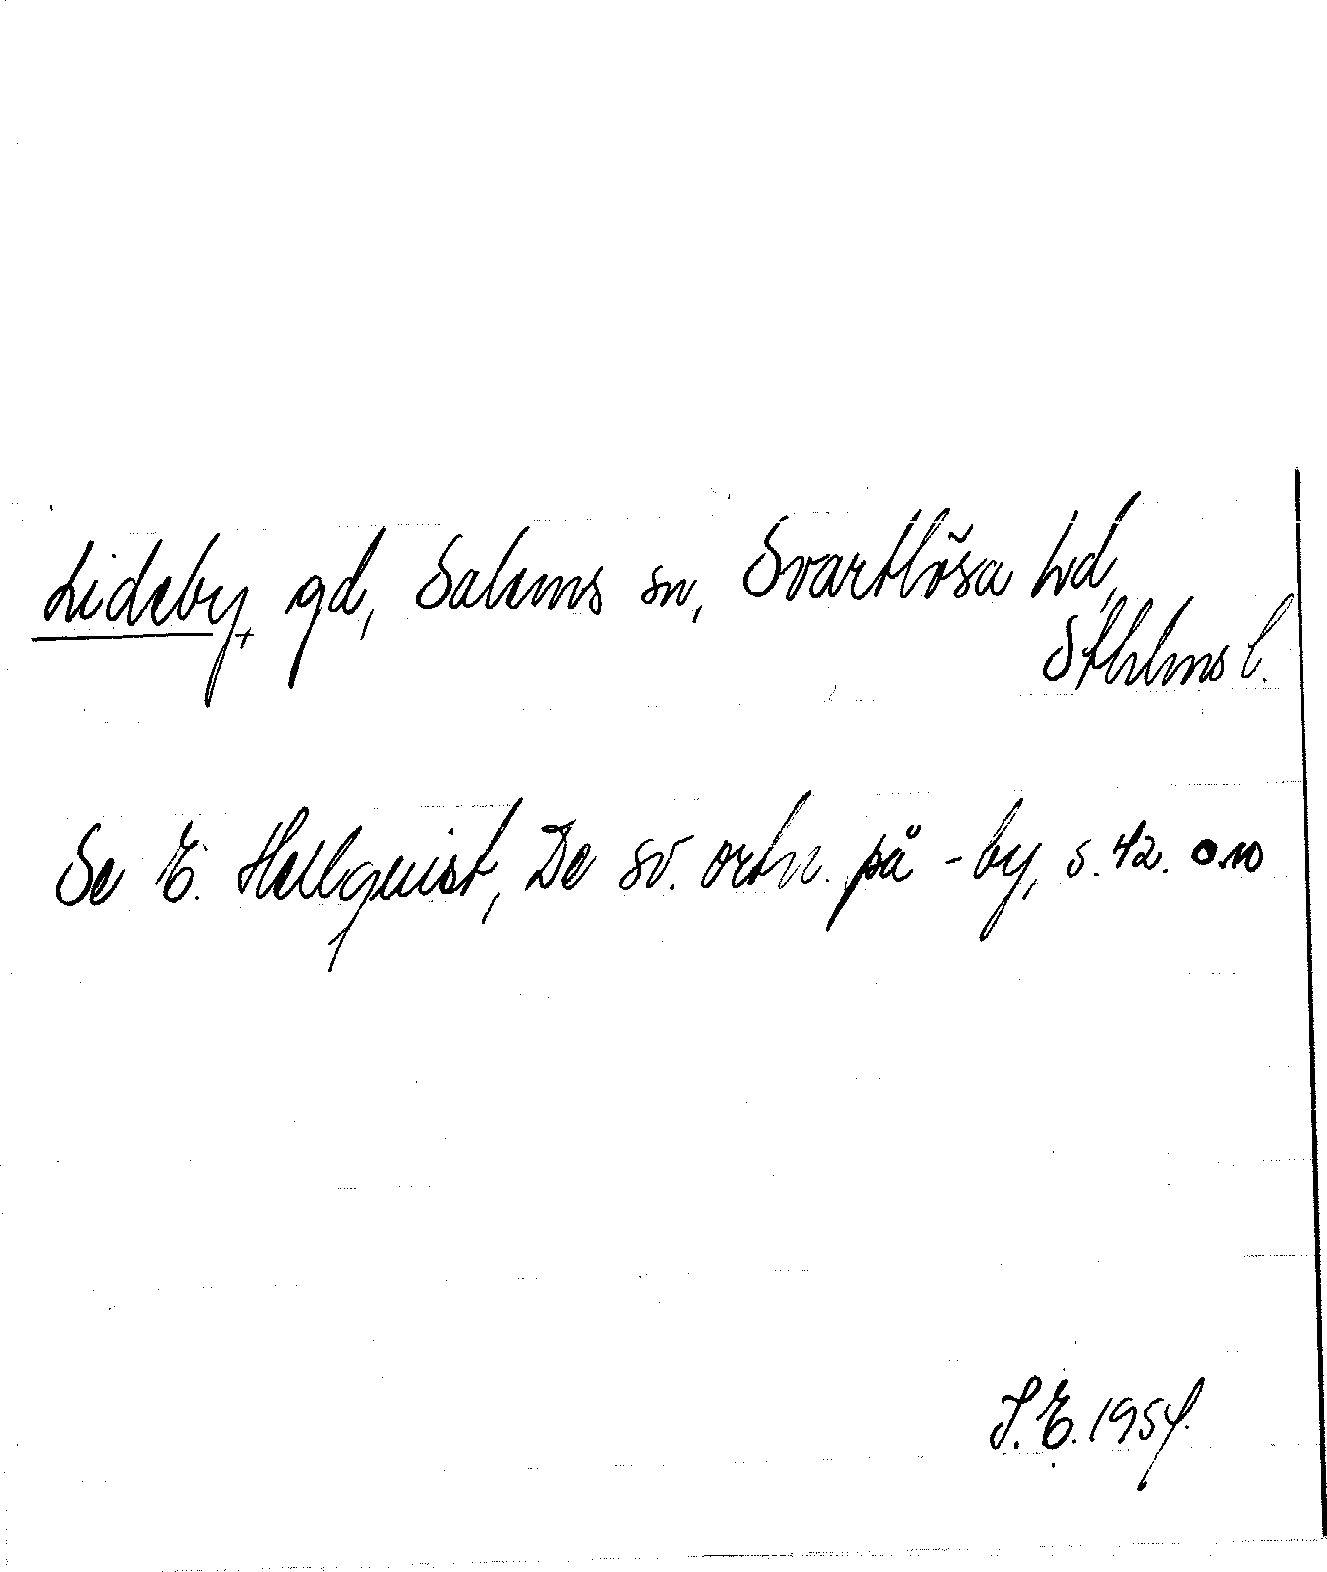 Lideby, gd, Salems sn, Svartlösa hd,
Sthlms l.
Se E. Hellquist, De sv. ortn. på -by, s. 42.
S.E. 1954.